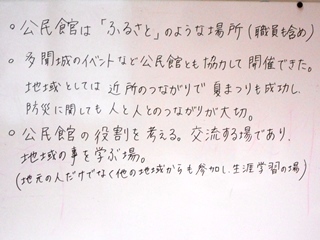 ○ 公民館は「ふるさと」のような場所(職員も含め)
○ 多聞城のイベントなど公民館とも協力して開催できた。
地域としては近所のつながりで夏まつりも成功し、
防災に関しても人と人とのつながりが大切。
○ 公民館の役割を考える。交流する場であり、
地域の事を学ぶ場。
(地元の人だけでなく他の地域からも参加し、生涯学習の場)